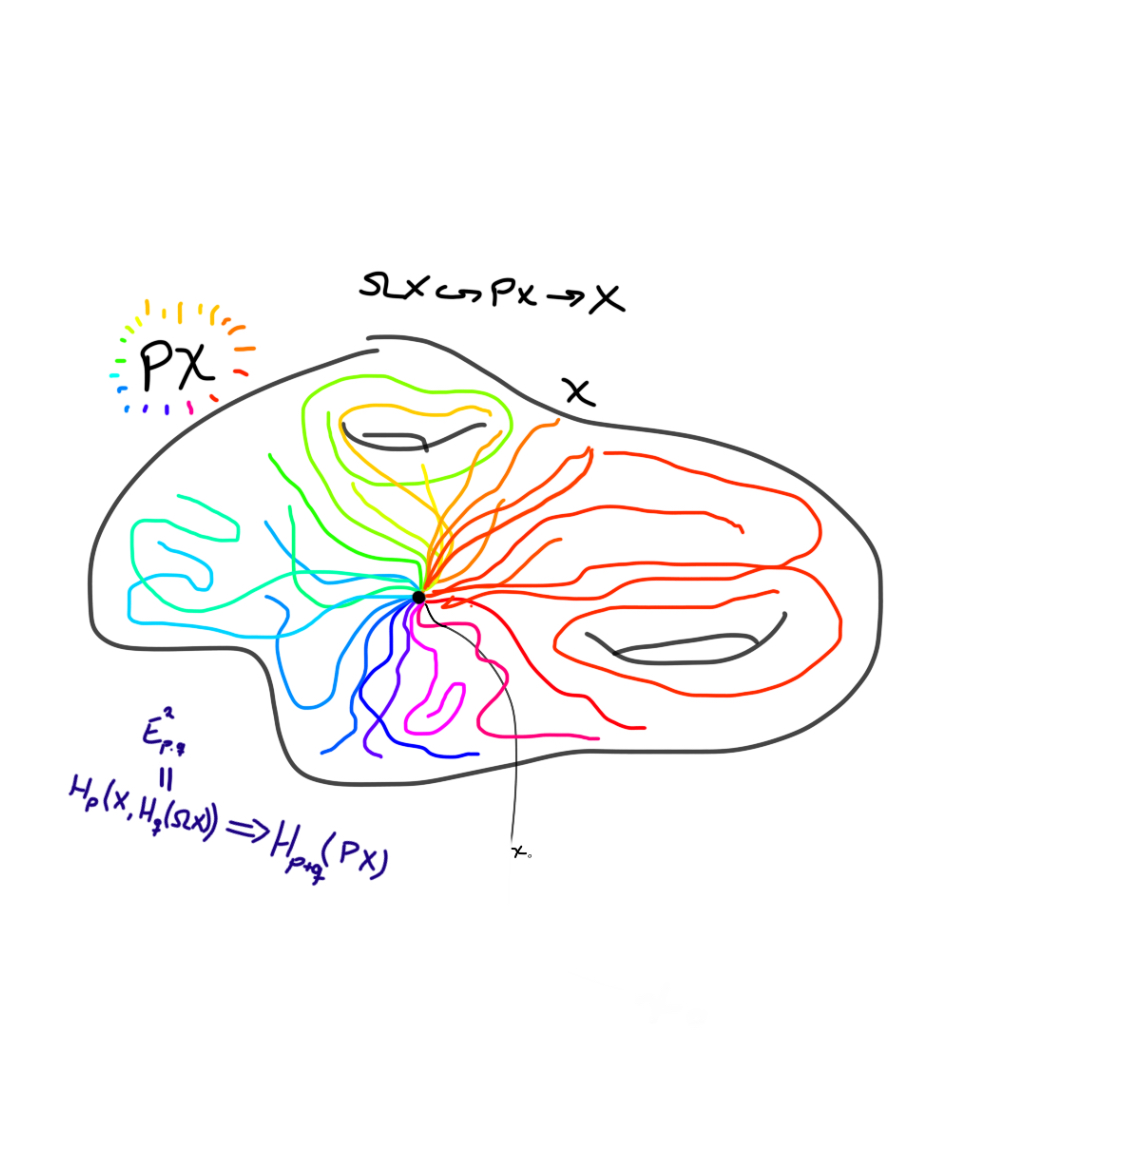 ΩX ↪ PX → X
PX
X
E²ₚ.q
||
Hₚ(X, H_q(ΩX)) ⟹ Hₚ₊q(PX)
x₀